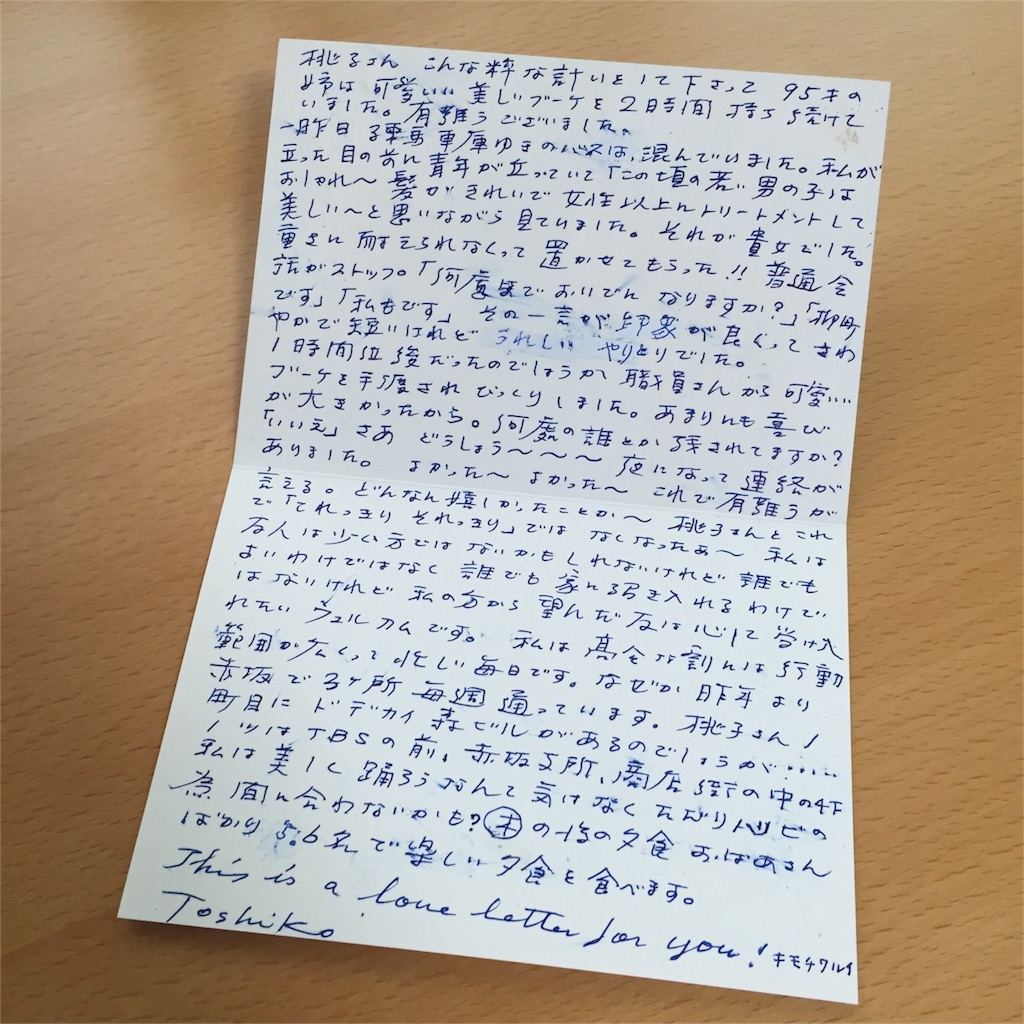 桃子さん こんな粋な計いをして下さって 95才の
姉は 可愛いい 美しいブーケを 2時間 持ち続けて
いました。有難うございました。
一昨日 練馬車庫ゆきのバスは、混んでいました。私が
立った目の前に 青年が立っていて「この頃の若い男の子は
おしゃれ〜 髪がきれいで 女性以上にトリートメントして
美しい〜と思いながら見ていました。それが貴女でした。
重さに耐えられなくって 置かせてもらった!! 普通会
話がストップ。「何處まで おいでに なりますか?」「柳町
です」「私もです」 その一言が 印象が良くって さわ
やかで短いけれど うれしい やりとりでした。
1時間位後だったのでしょうか 職員さんから 可愛いい
ブーケを手渡され びっくりしました。あまりにも喜び
が大きかったから。何處の誰とか残されてますか?
「いいえ」さあ どうしよう〜〜〜 夜になって連絡が
ありました。 よかった〜 よかった〜 これで有難うが
言える。どんなに嬉しかったことか〜 桃子さんとこれ
で「それっきり それっきり」では なくなったぁ〜 私は
友人は少い方ではないかもしれないけれど 誰でも
よいわけではなく 誰でも家に招き入れるわけで
はないけれど 私の方から望んだ友は心して 受け入
れたい ウェルカムです。 私は高令な割には行動
範囲が広くって忙しい毎日です。なぜか 昨年より
赤坂で 3ヶ所 毎週通っています。 桃子さん1
町目に ドデカイ 森ビルがあるのでしょうが……
1ツは TBSの前、赤坂支所、商店街の中の4F
私は美しく踊ろうなんて気はなく ただリハビリの
為 間に合わないかも? ㊍の夕食 おばあさん
ばかり 5.6名で楽しい夕食を食べます。
This is a love letter for you! キモチワルイ
Toshiko